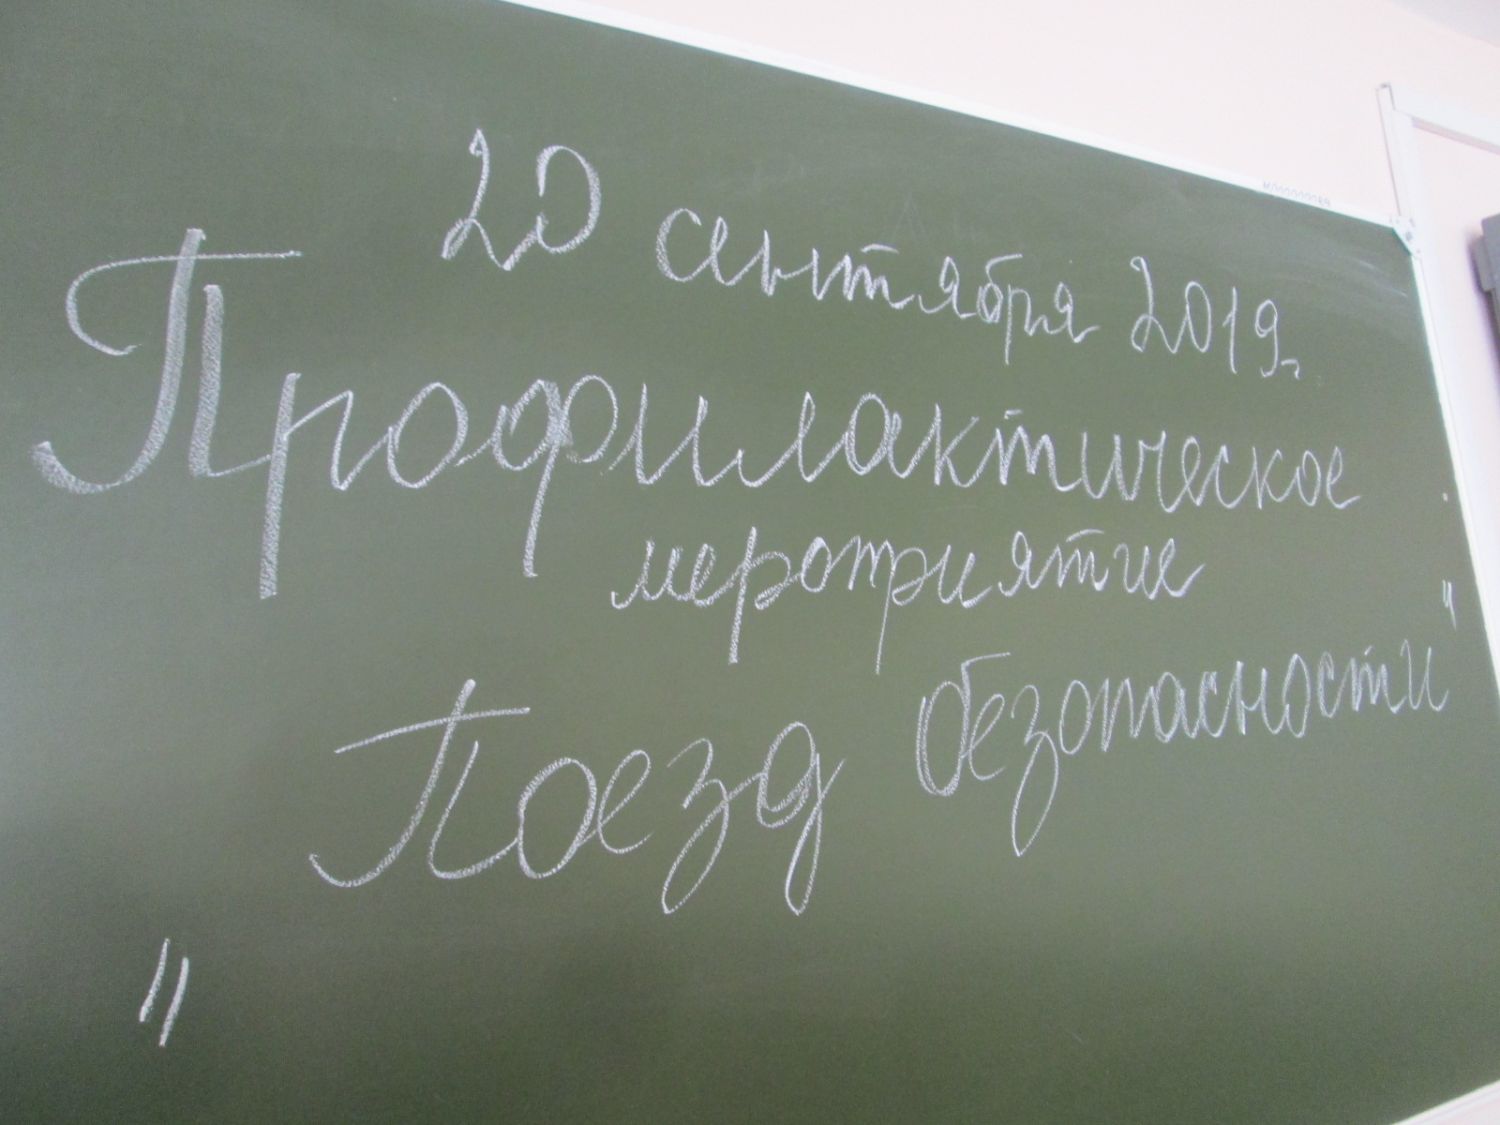 20 сентября 2019г
Профилактическое
мероприятие
"Поезд безопасности"